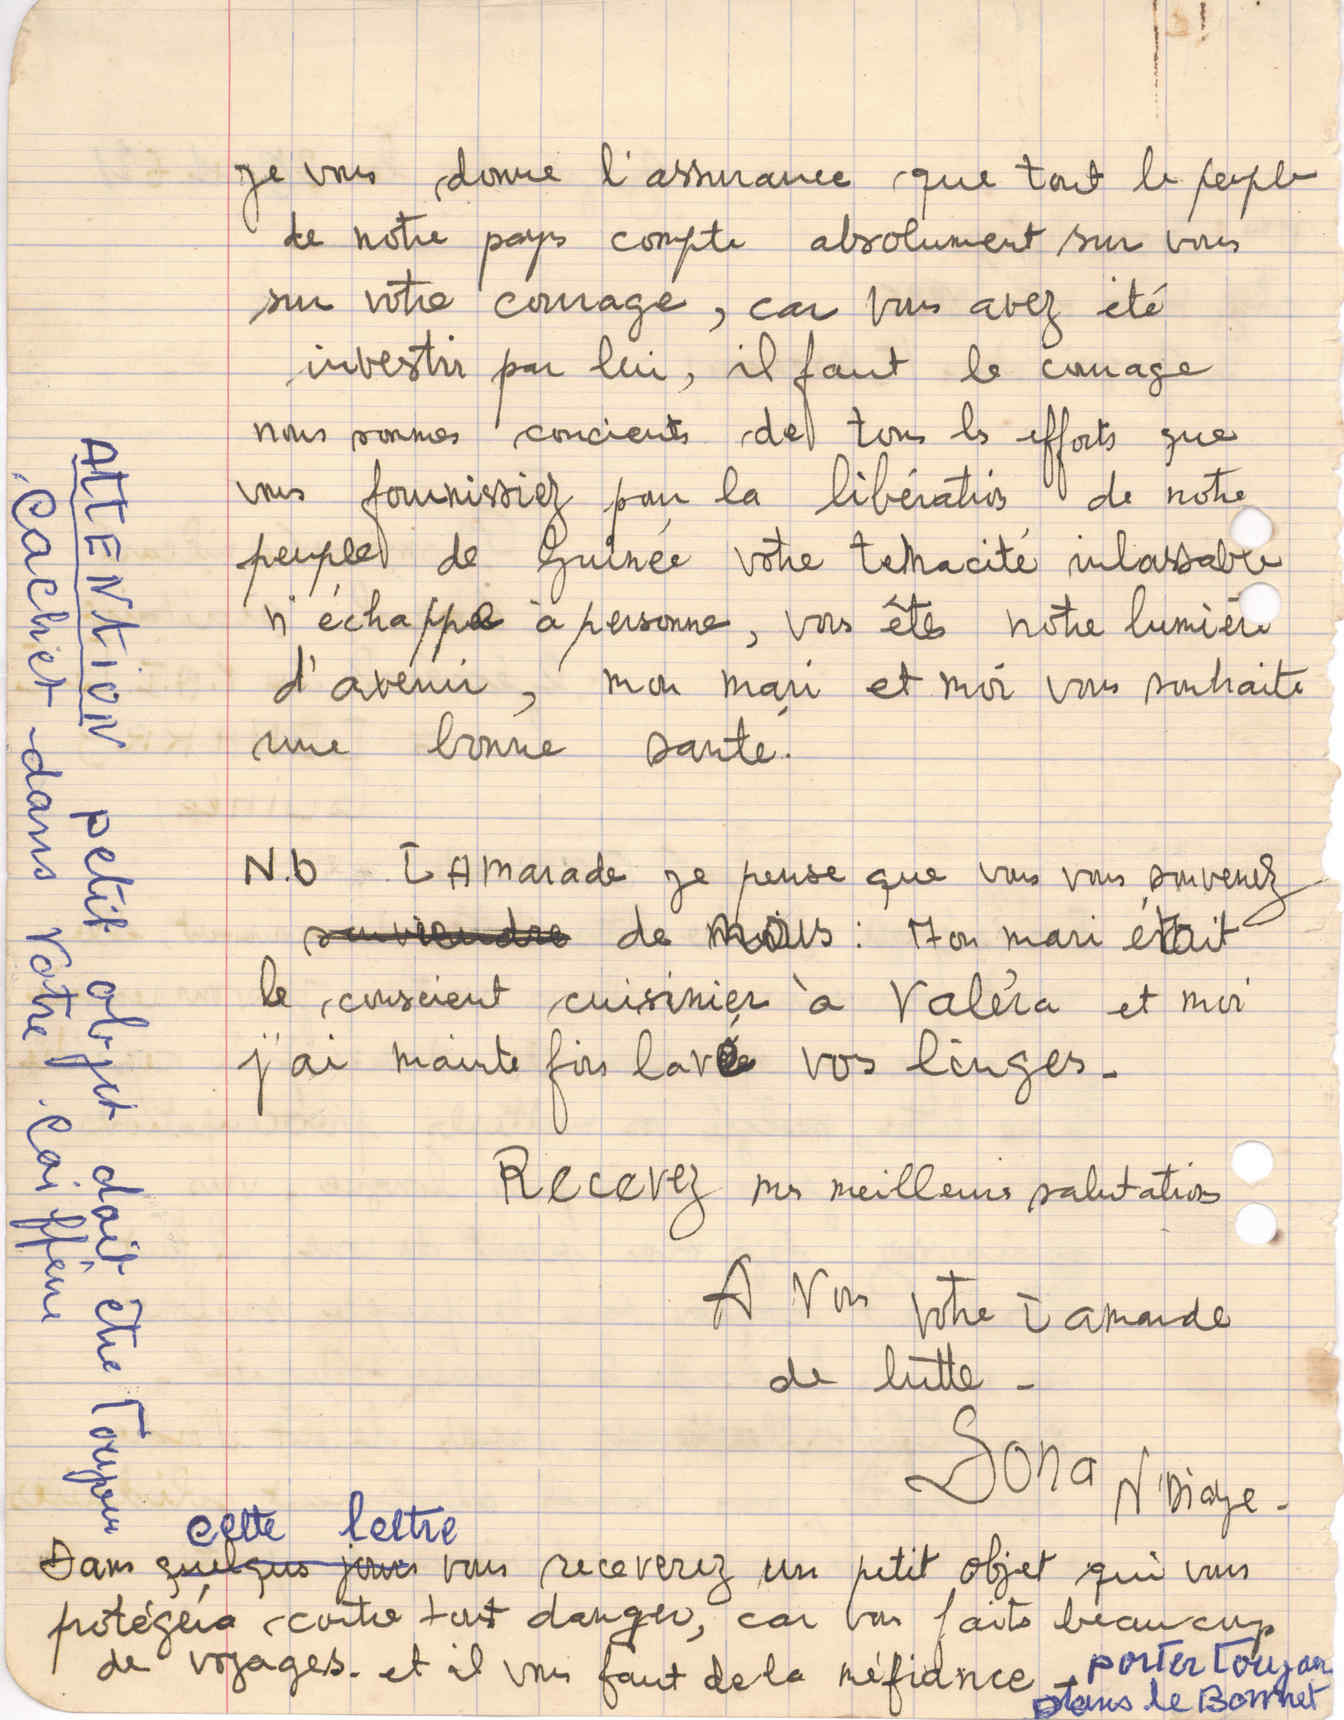 je vous donne l'assurance que tout le peuple
de notre pays compte absolument sur vous
sur votre courage, car vous avez été
investir par lui, il faut le courage
nous sommes concients de tous les efforts que
vous fournissiez pour la libération de notre
peuple de Guinée votre tenacité inlassable
n'échappe à personne, vous êtes notre lumière
d'avenir, mon mari et moi vous souhaite
une bonne santé.
N.b CAmarade je pense que vous vous souvenez
souviendre de nous : Mon mari était
le conscient cuisinier à Valéra et moi
j'ai mainte fois lavée vos linges.
Recevez mes meilleurs salutations
A Vous votre Camarade
de lutte -
Sona N'Diaye -
cette lettre
Dans quelques jours vous receverez un petit objet qui vous
protégéra contre tout danger, car vous faits beaucoup
de voyages. et il vous faut de la méfiance. porter Toujour
dans le Bonnet
ATTENTION petit objet doit être Toujour
Cachet dans Votre Coiffeur